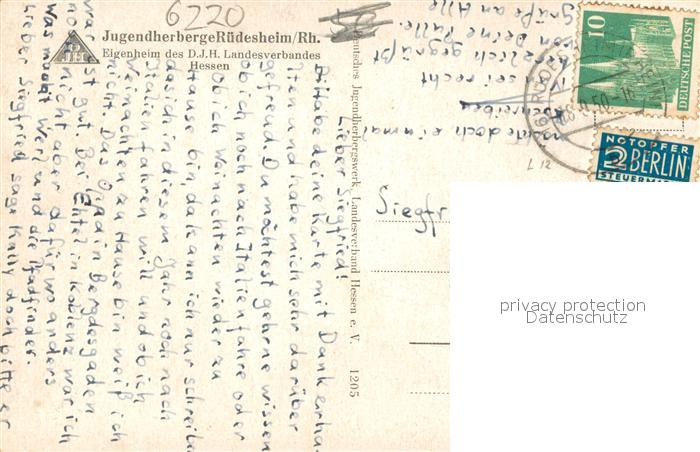 6220
JugendherbergeRüdesheim/Rh.
Eigenheim des D.J.H. Landesverbandes
Hessen
DJH
Deutsches Jugendherbergswerk, Landesverband Hessen e. V. 1205
Lieber Siegfried!
habe deine Karte mit Dank erhal-
ten und habe mich sehr darüber
gefreud Du möchtest gehrne wissen
ob ich noch nach Italien fahre oder
ob ich Weihnachten wieder zu
Hause bin da kann ich nur schreiben
das ich in diesem Jahr noch nach
Italien fahren will und ob ich
Weihnachten zu Hause bin weiß ich
nicht Das in Bergdesgaden
war ist gut. Bei in Koblenz war ich
noch nicht aber dafür wo anders
Was macht Weil und die Pfadfinder.
Lieber Siegfried sage doch bitte er
möchte doch einmal
schreiben
Nun sei recht
herzlich gegrüßt
von Deine
Grüße an Alle
Siegfr
L 12
10
DEUTSCHE POST
50
NOTOPFER
2 BERLIN
STEUERMARKE
privacy protection
Datenschutz